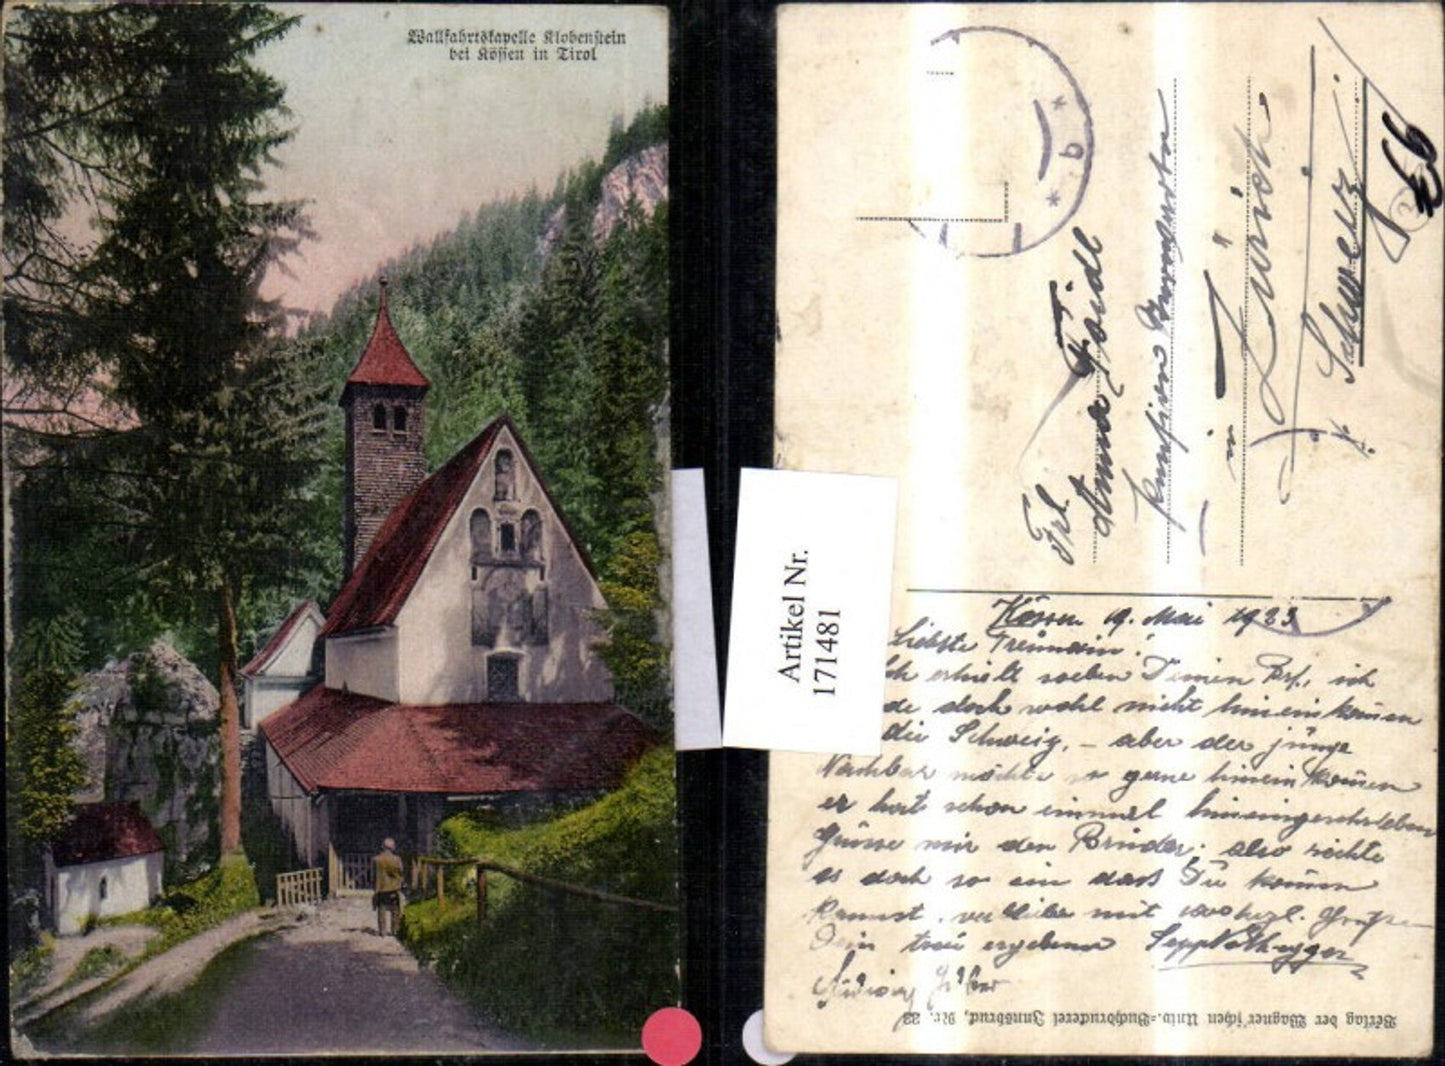 Wallfahrtskapelle Klobenstein
bei Kössen in Tirol
Artikel Nr.
171481
* b *
Frl.
Anna Födl
Pension
in Zürich
Schweiz
Kössen 19. Mai 1933
Liebste Freundin!
erhielt soeben Deinen ich
doch wohl nicht hinein können
die Schweiz, – aber der junge
Nachbar möchte so gerne hinein können
er hat schon einmal hineingeschrieben
Grüsse mir den Bruder. also richte
es doch so ein dass Du kommen
kannst. verbleibe mit 1000 herzl. Grüsse
Dein treu ergebener Sepp
Verlag der Wagner'schen Univ.-Buchdruckerei Innsbruck, Nr. 23